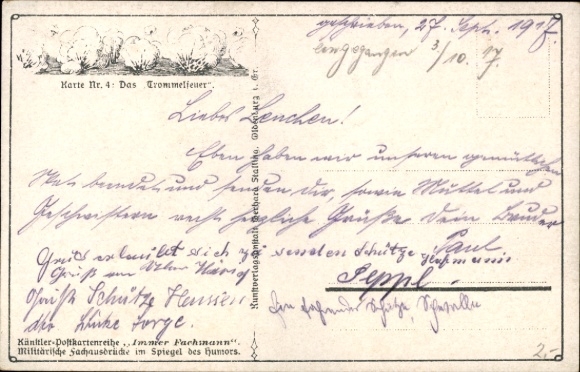 geschrieben, 27. Sept. 1917.
3/10. 17.
Karte Nr. 4: Das „Trommelfeuer".
Liebes Lenchen!
Eben haben wir unseren gemütlichen
beendet und senden Dir, sowie Mutter und
Geschwistern recht herzliche Grüße Dein Bruder
Paul
Gruß erlaubt sich zu senden Schütze Hermann
Gruß von
Seppl.
Grüße Schütze Hansen
die
Schütze,
Künstler-Postkartenreihe „Immer Fachmann".
Militärische Fachausdrücke im Spiegel des Humors.
Kunstverlagsanstalt Gerhard Stalling, Oldenburg i. Gr.
2.-